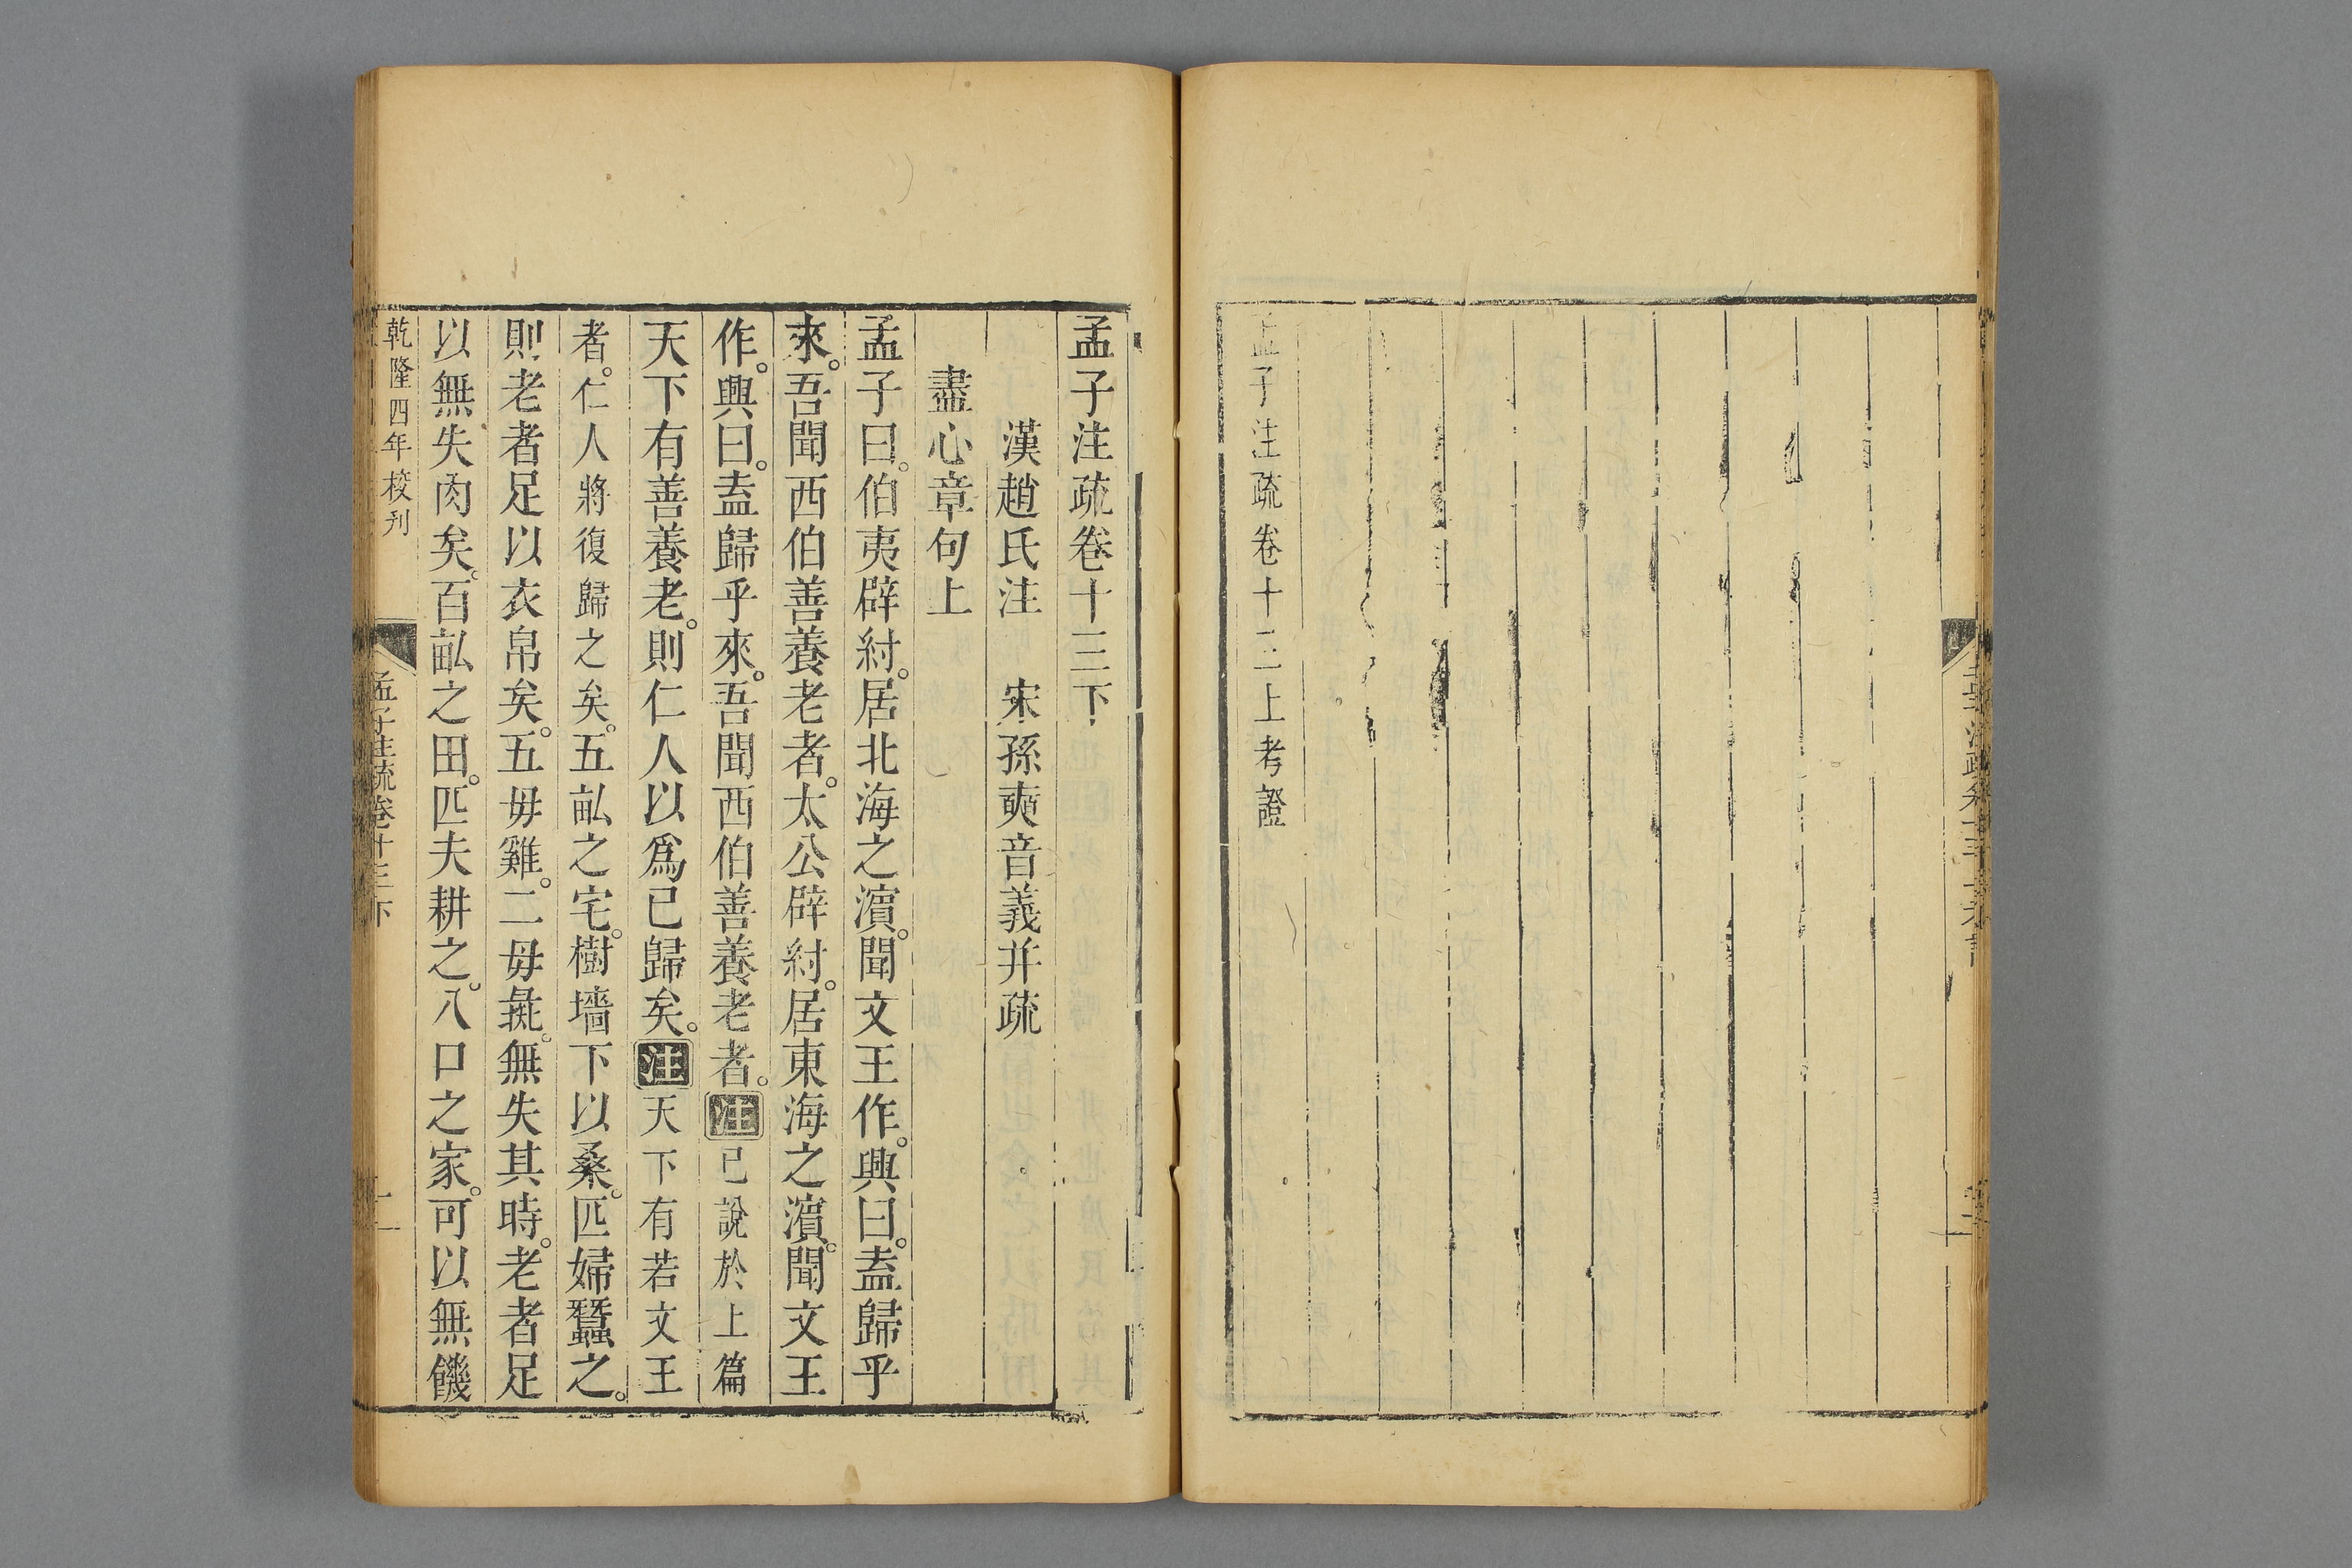 孟子注疏卷十三上考證
孟子注疏卷十三下
漢趙氏注 宋孫奭音義并疏
盡心章句上
孟子曰。伯夷辟紂。居北海之濱。聞文王作。興曰。盍歸乎
來。吾聞西伯善養老者。太公辟紂。居東海之濱。聞文王
作。興曰。盍歸乎來。吾聞西伯善養老者。注已說於上篇
天下有善養老。則仁人以爲已歸矣。注天下有若文王
者。仁人將復歸之矣。五畝之宅。樹墻下以桑。匹婦蠶之。
則老者足以衣帛矣。五母雞。二母彘。無失其時。老者足
以無失肉矣。百畝之田。匹夫耕之。八口之家。可以無饑
乾隆四年校刊
孟子注疏卷十三下